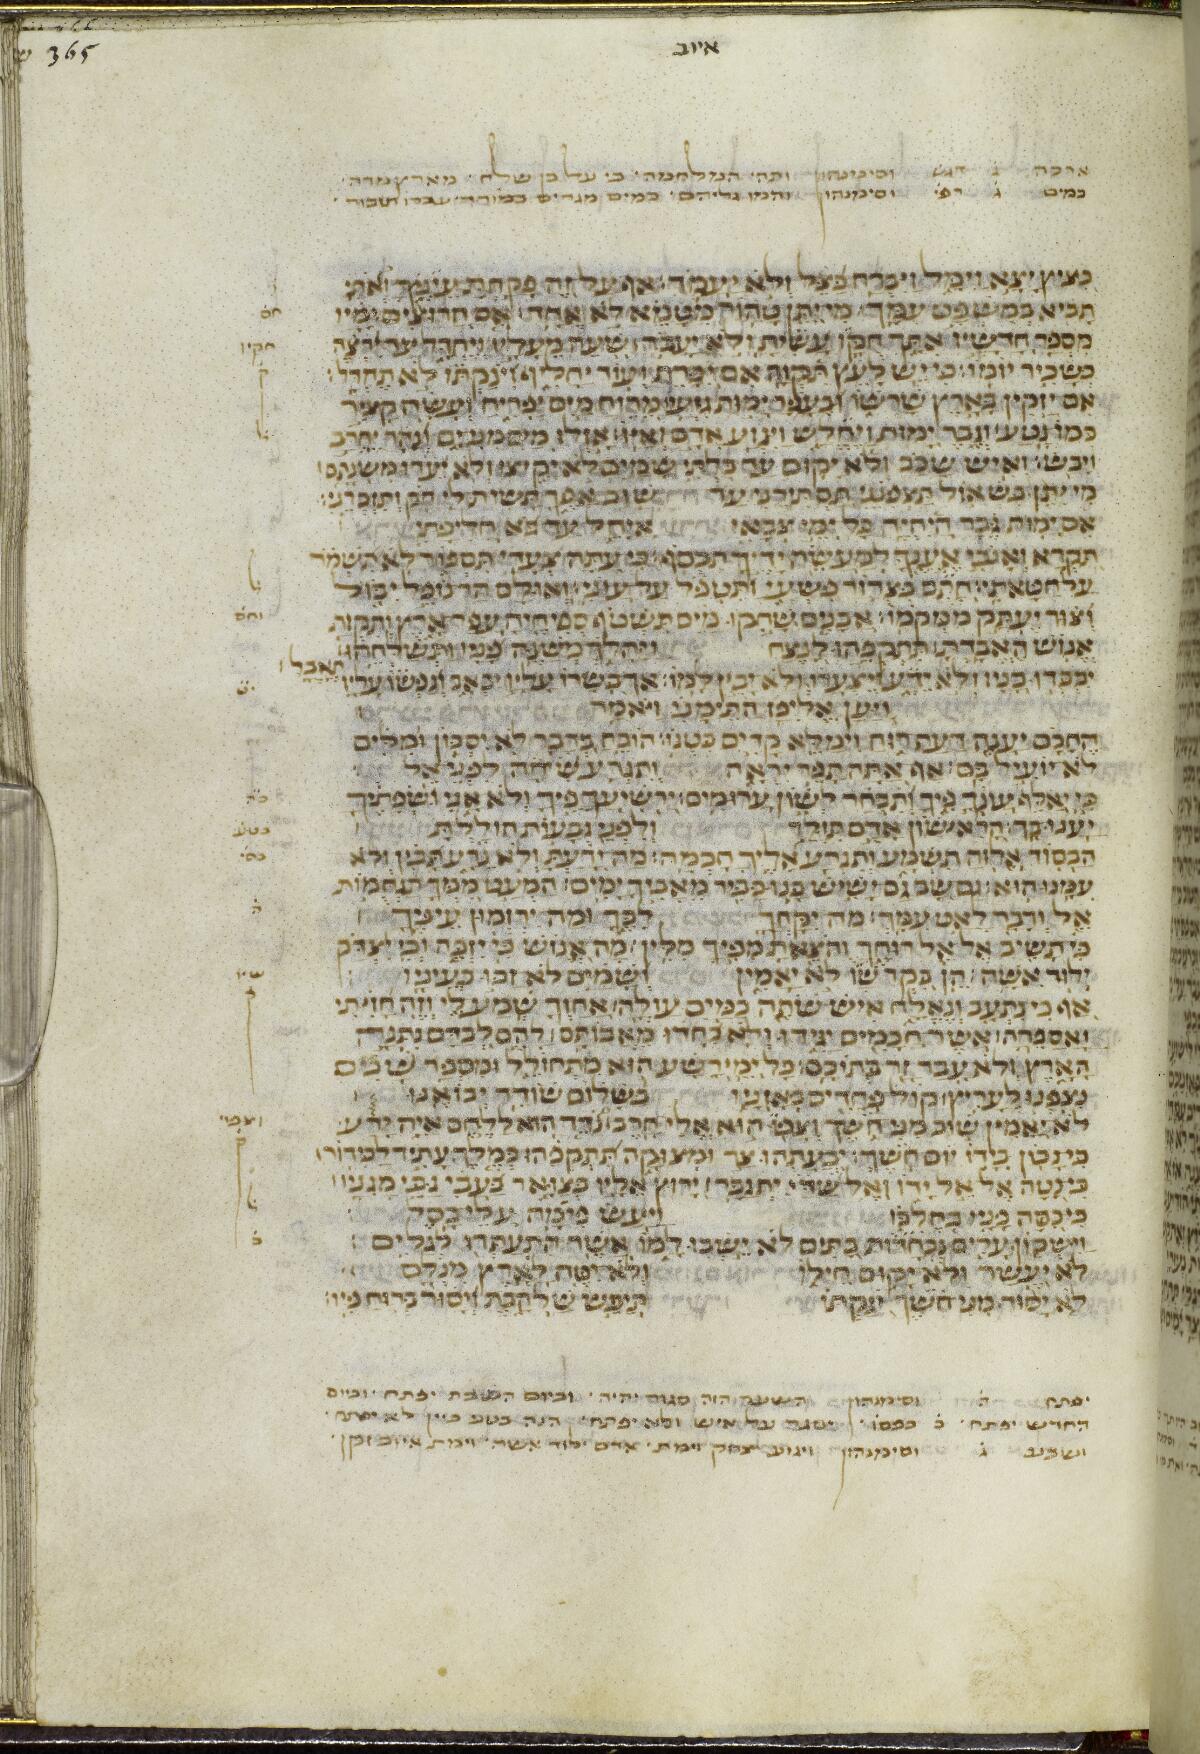 365
איוב
כציץ יצא וימל ויברח כצל ולא יעמוד אף על זה פקחת עינך ואתי
תביא במשפט עמך מי יתן טהור מטמא לא אחד אם חרוצים ימיו
מספר חדשיו אתך חקו עשית ולא יעבר שעה מעליו ויחדל עד ירצה
כשכיר יומו כי יש לעץ תקוה אם יכרת ועוד יחליף וינקתו לא תחדל
אם יזקין בארץ שרשו ובעפר ימות גזעו מריח מים יפריח ועשה קציר
כמו נטע וגבר ימות ויחלש ויגוע אדם ואיו אזלו מים מני ים ונהר יחרב
ויבש ואיש שכב ולא יקום עד בלתי שמים לא יקיצו ולא יערו משנתם
מי יתן בשאול תצפנני תסתירני עד שוב אפך תשית לי חק ותזכרני
אם ימות גבר היחיה כל ימי צבאי איחל עד בא חליפתי
תקרא ואנכי אענך למעשה ידיך תכסף כי עתה צעדי תספור לא תשמר
על חטאתי חתם בצרור פשעי ותטפל על עוני ואולם הר נופל יבול
וצור יעתק ממקמו אבנים שחקו מים תשטף ספיחיה עפר ארץ ותקות
אנוש האבדת תתקפהו לנצח ויהלך משנה פניו ותשלחהו
יכבדו בניו ולא ידע ויצערו ולא יבין למו אך בשרו עליו יכאב ונפשו עליו תאבל
ויען אליפז התימני ויאמר
החכם יענה דעת רוח וימלא קדים בטנו הוכח בדבר לא יסכון ומלים
לא יועיל בם אף אתה תפר יראה ותגרע שיחה לפני אל
כי יאלף עונך פיך ותבחר לשון ערומים ירשיעך פיך ולא אני ושפתיך
יענו בך הראישון אדם תולד ולפני גבעות חוללת
הבסוד אלוה תשמע ותגרע אליך חכמה מה ידעת ולא נדע תבין ולא
עמנו הוא גם שב גם ישיש בנו כביר מאביך ימים המעט ממך תנחמות
אל ודבר לאט עמך מה יקחך לבך ומה ירזמון עיניך
כי תשיב אל אל רוחך והצאת מפיך מלין מה אנוש כי יזכה וכי יצדק
ילוד אשה הן בקדשו לא יאמין ושמים לא זכו בעיניו
אף כי נתעב ונאלח איש שותה כמים עולה אחוך שמע לי וזה חזיתי
ואספרה אשר חכמים יגידו ולא כחדו מאבותם להם לבדם נתנה
הארץ ולא עבר זר בתוכם כל ימי רשע הוא מתחולל ומספר שנים
נצפנו לעריץ קול פחדים באזניו בשלום שודד יבואנו
לא יאמין שוב מני חשך וצפו הוא אלי חרב נדד הוא ללחם איה ידע
כי נכון בידו יום חשך יבעתהו צר ומצוקה תתקפהו כמלך עתיד לכידור
כי נטה אל אל ידו ואל שדי יתגבר ירוץ אליו בצואר בעבי גבי מגניו
כי כסה פניו בחלבו ויעש פימה עלי כסל
וישכון ערים נכחדות בתים לא ישבו למו אשר התעתדו לגלים
לא יעשר ולא יקום חילו ולא יטה לארץ מנלם
לא יסור מני חשך יונקתו תיבש שלהבת ויסור ברוח פיו
יפתח וסימנהון השער הזה סגור יהיה וביום השבת יפתח וביום
החדש יפתח יסגר על איש ולא יפתח הנה בטני כיין לא יפתח
ושבע ג וסימנהון ויגוע יצחק וימת אדם ילוד אשה וימת איוב זקן